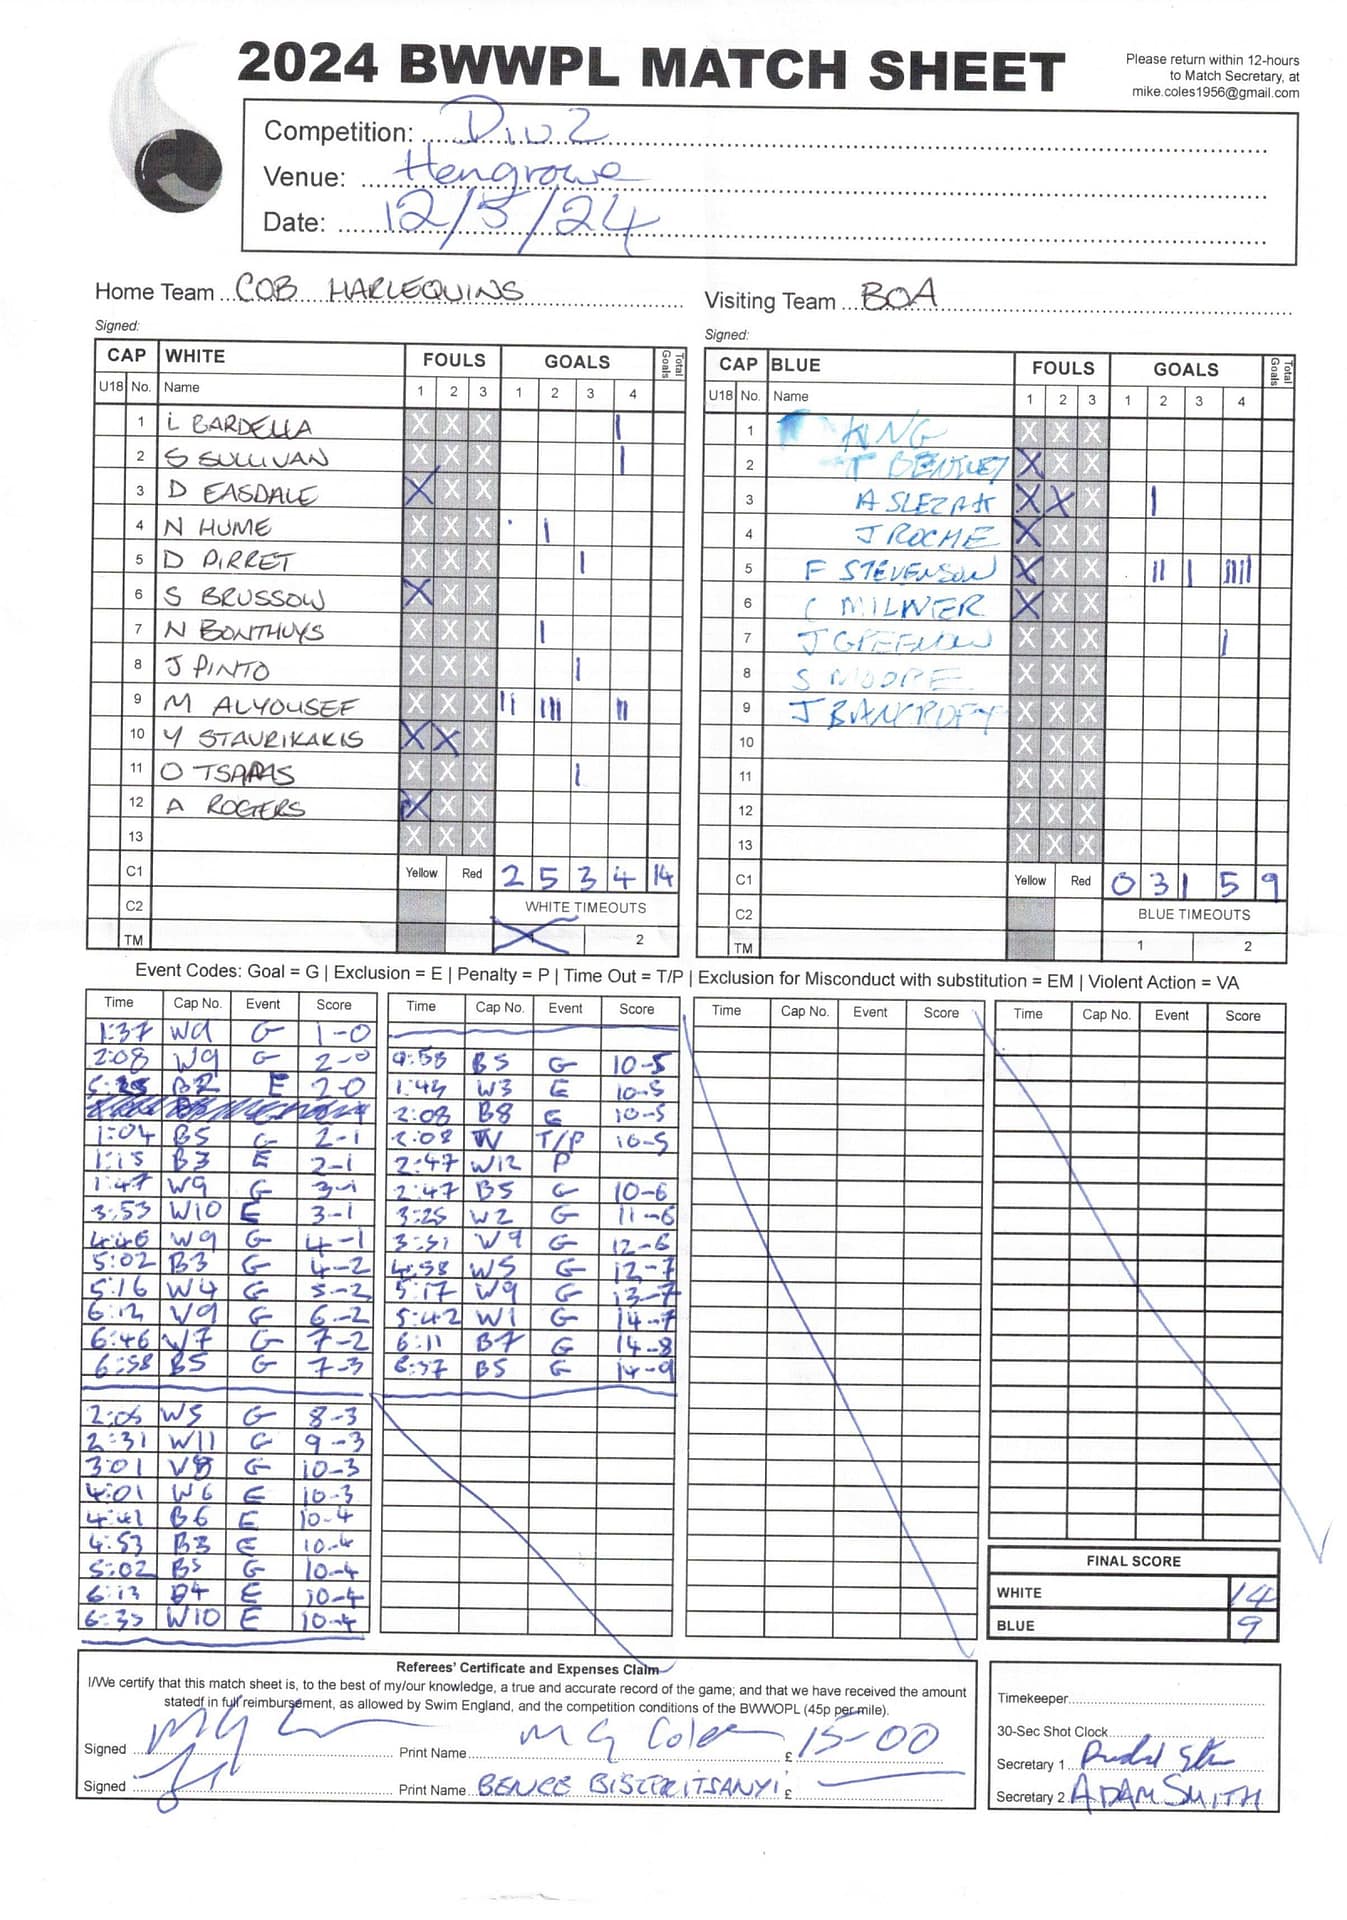 2024 BWWPL MATCH SHEET
Please return within 12-hours
to Match Secretary, at
mike.coles1956@gmail.com
Competition: Div 2
Venue: Hengrove
Date: 12/5/24
Home Team COB HARLEQUINS
Visiting Team BOA
Signed:
Signed:
CAP WHITE FOULS GOALS Total Goals
U18 No. Name 1 2 3 1 2 3 4
1 L BARDELLA X X X |
2 S SULLIVAN X X X |
3 D EASDALE X X X
4 N HUME X X X |
5 D PIRRET X X X |
6 S BRUSSOW X X X
7 N BONTHUYS X X X |
8 J PINTO X X X |
9 M ALYOUSEF X X X || ||| ||
10 Y STAURIKAKIS X X X
11 O TSAPAS X X X |
12 A ROGERS X X X
13 X X X
C1 Yellow Red 2 5 3 4 14
C2 WHITE TIMEOUTS
TM 1 2
CAP BLUE FOULS GOALS Total Goals
U18 No. Name 1 2 3 1 2 3 4
1 KING X X X
2 T BENTLEY X X X
3 A SLEZAK X X X |
4 J ROCHE X X X
5 F STEVENSON X X X || | |||||
6 C MILNER X X X
7 J X X X |
8 S MOORE X X X
9 J X X X
10 X X X
11 X X X
12 X X X
13 X X X
C1 Yellow Red 0 3 1 5 9
C2 BLUE TIMEOUTS
TM 1 2
Event Codes: Goal = G | Exclusion = E | Penalty = P | Time Out = T/P | Exclusion for Misconduct with substitution = EM | Violent Action = VA
Time Cap No. Event Score
1:37 W9 G 1-0
2:08 W9 G 2-0
B2 E 2-0
1:04 B5 G 2-1
1:15 B3 E 2-1
1:47 W9 G 3-1
3:53 W10 E 3-1
4:46 W9 G 4-1
5:02 B3 G 4-2
5:16 W4 G 5-2
6:12 W9 G 6-2
6:46 W7 G 7-2
6:58 B5 G 7-3
2:05 W5 G 8-3
2:31 W11 G 9-3
3:01 W8 G 10-3
4:01 W6 E 10-3
4:41 B6 E 10-4
4:53 B3 E 10-4
5:02 B5 G 10-4
6:13 B4 E 10-4
6:33 W10 E 10-4
Time Cap No. Event Score
0:58 B5 G 10-5
1:43 W3 E 10-5
2:08 B8 E 10-5
2:08 W T/P 10-5
2:47 W12 P
2:47 B5 G 10-6
3:25 W2 G 11-6
3:51 W9 G 12-6
4:58 W5 G 12-7
5:17 W9 G 13-7
5:42 W1 G 14-7
6:11 B7 G 14-8
6:37 B5 G 14-9
Time Cap No. Event Score
Time Cap No. Event Score
FINAL SCORE
WHITE 14
BLUE 9
Referees' Certificate and Expenses Claim
I/We certify that this match sheet is, to the best of my/our knowledge, a true and accurate record of the game; and that we have received the amount
statedf in full reimbursement, as allowed by Swim England, and the competition conditions of the BWWOPL (45p per mile).
Signed Print Name M G Coles £ 15-00
Signed Print Name BENCE BISZTRITSANYI £
Timekeeper
30-Sec Shot Clock
Secretary 1
Secretary 2 ADAM SMITH